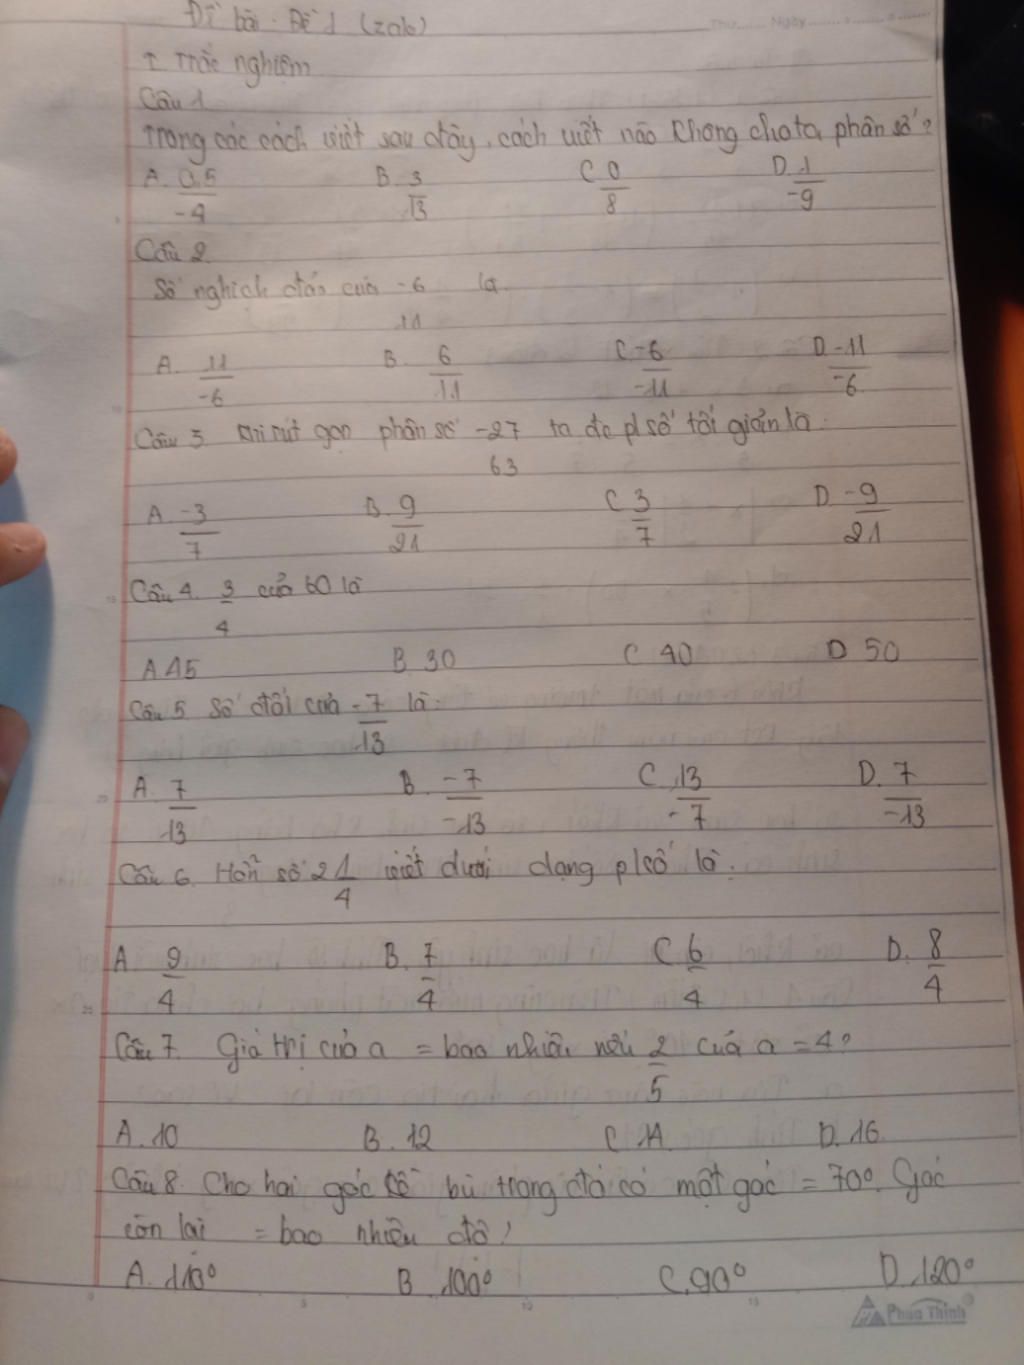 Đề bài. Đề 1 (zalo)
Thứ Ngày
I Trắc nghiệm
Câu 1
Trong các cách viết sau đây, cách viết nào không cho ta phân số?
A. 0,5/-4 B. 3/13 C 0/8 D. 1/-9
Câu 2
Số nghịch đảo của -6/11 là
A. 11/-6 B. 6/11 C -6/-11 D -11/-6
Câu 3 Khi rút gọn phân số -27/63 ta đc p/số tối giản là:
A. -3/7 B. 9/21 C 3/7 D -9/21
Câu 4. 3/4 của 60 là
A 45 B 30 C 40 D 50
Câu 5 Số đối của -7/13 là:
A. 7/13 B -7/-13 C. 13/-7 D. 7/-13
Câu 6. Hỗn số 2 1/4 viết dưới dạng p/số là:
A. 9/4 B. 7/4 C. 6/4 D. 8/4
Câu 7. Giá trị của a = bao nhiêu nếu 2/5 của a = 4?
A. 10 B. 12 C. 14 D. 16
Câu 8. Cho hai góc kề bù trong đó có một góc = 70°. Góc
còn lại = bao nhiêu độ?
A. 110° B. 100° C. 90° D. 120°
Phúc Thịnh